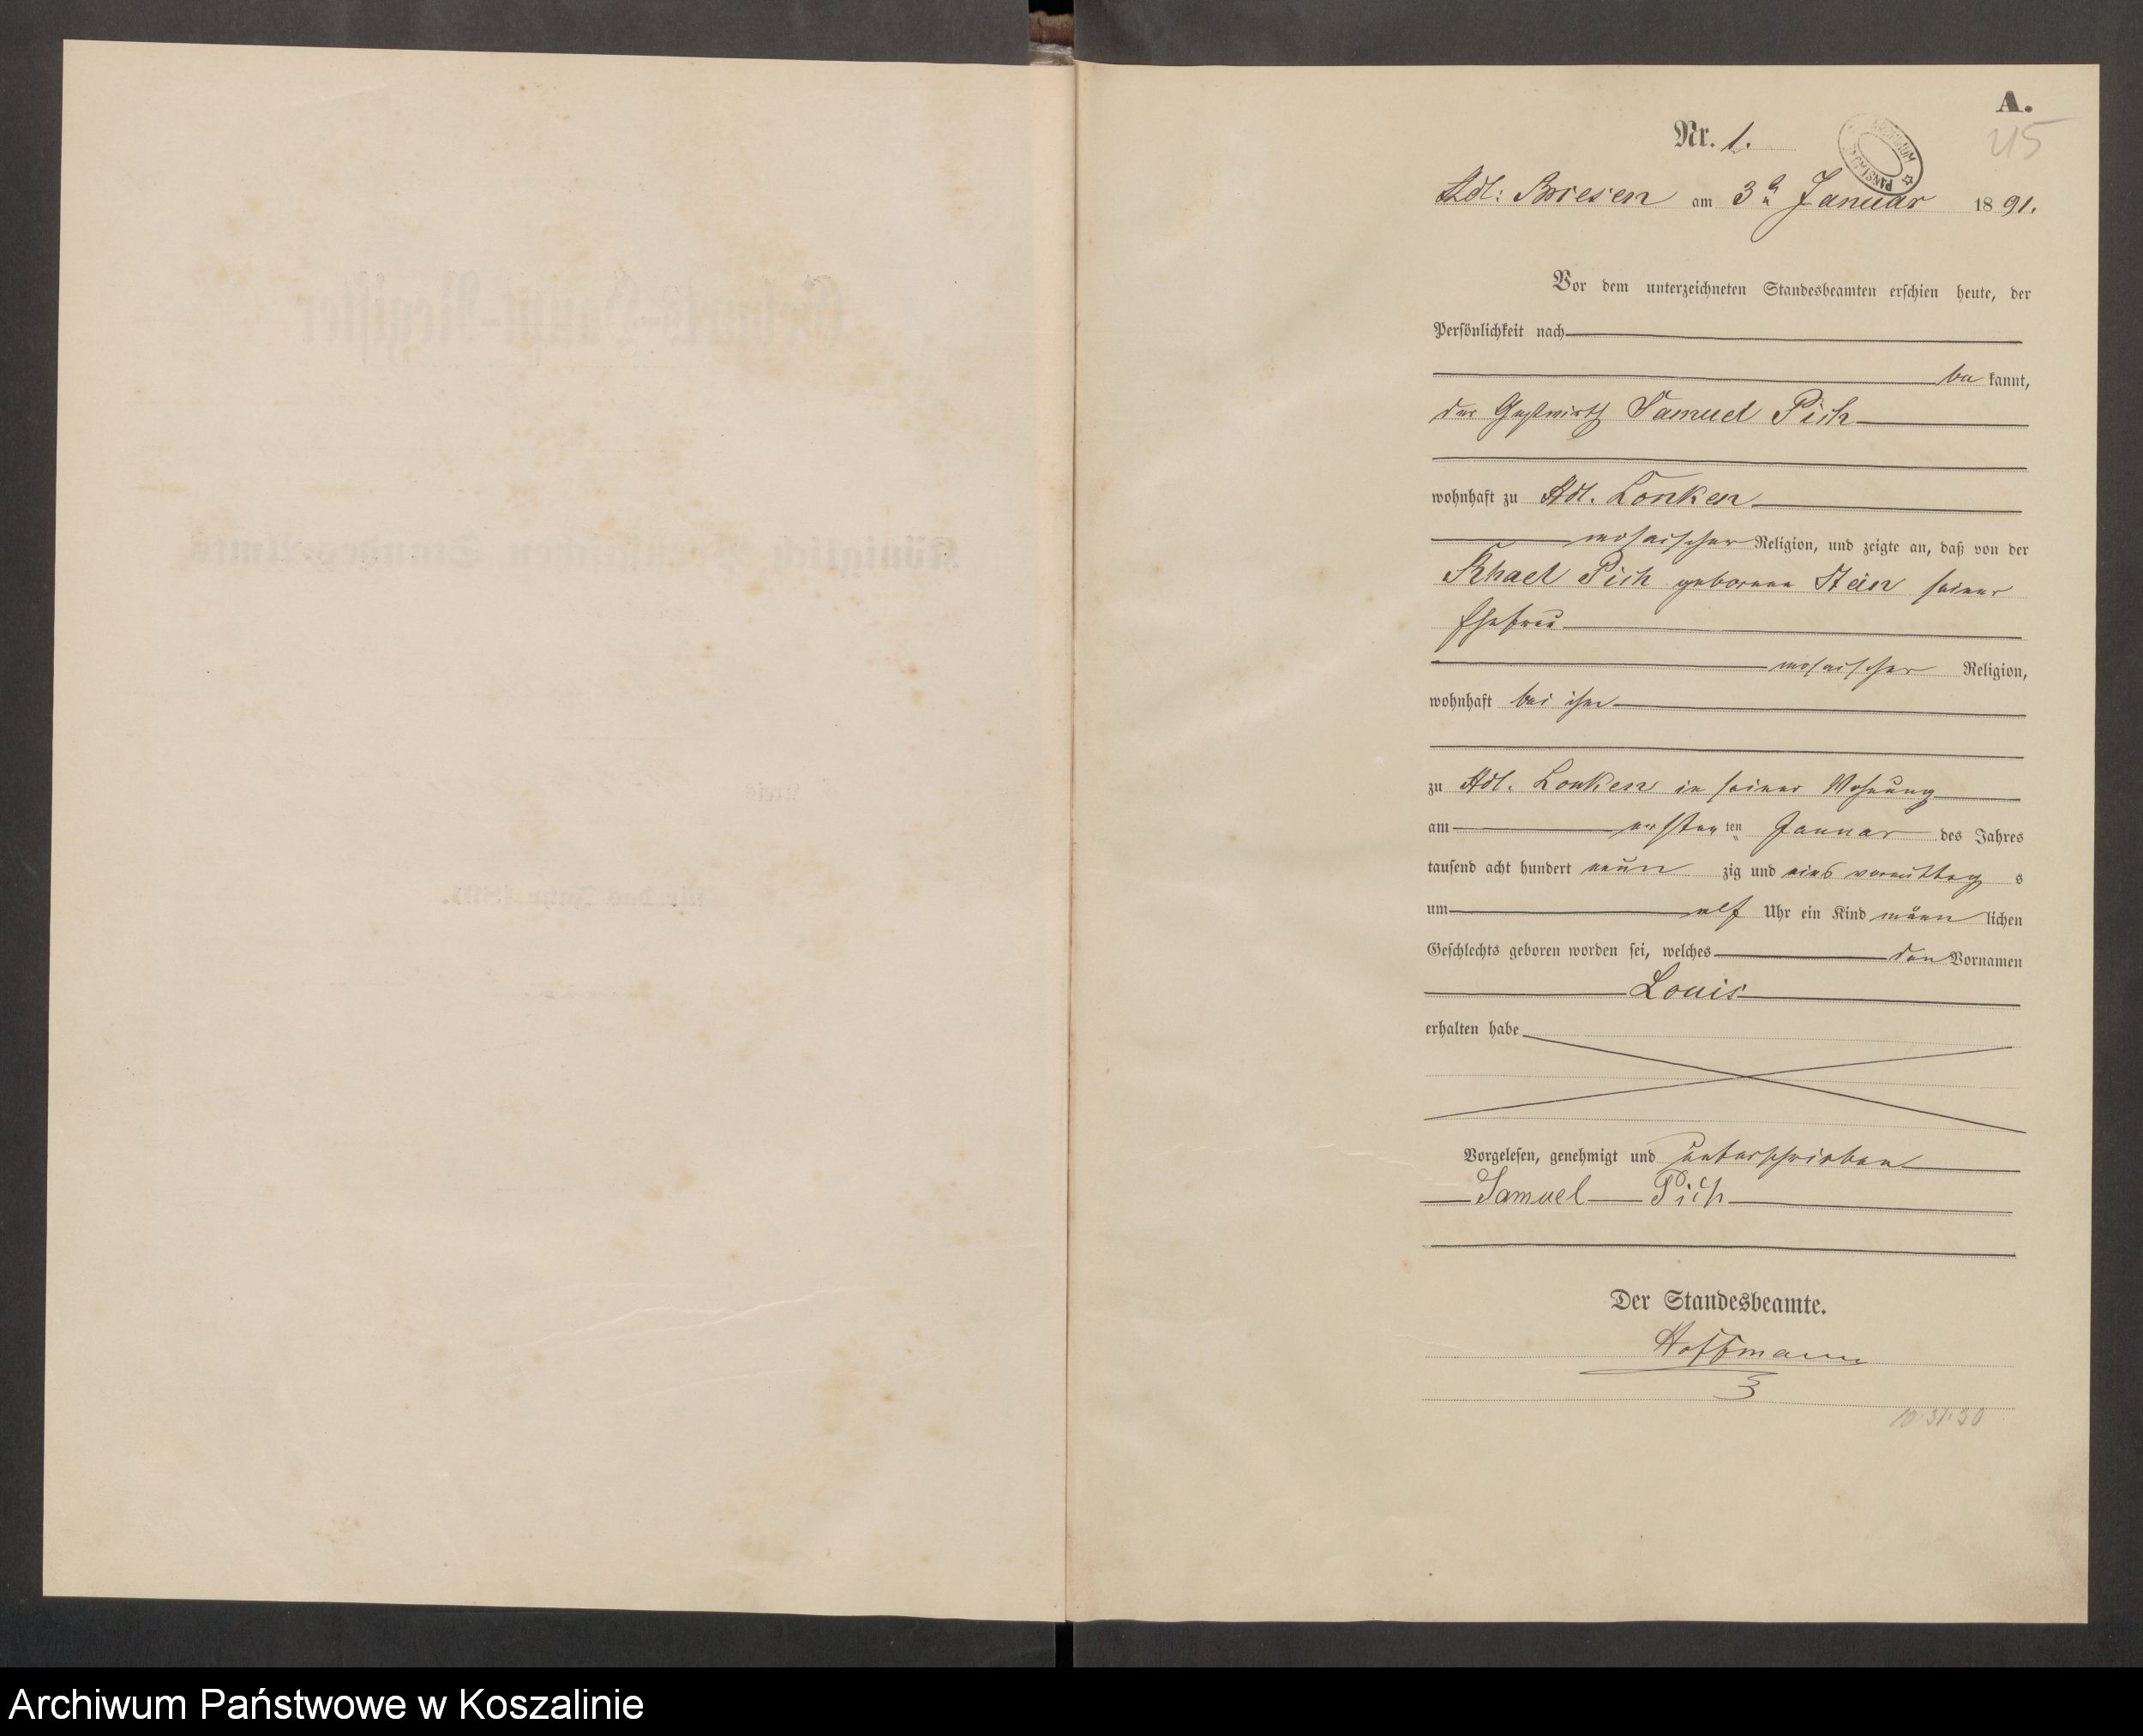 A.
Nr. 1.
45
ARCHIWUM PAŃSTWOWE
Adl: Briesen am 3ⁿ Januar 1891.
Vor dem unterzeichneten Standesbeamten erschien heute, der
Persönlichkeit nach
be kannt,
der Gastwirth Samuel Pich
wohnhaft zu Adl. Lonken
mosaischer Religion, und zeigte an, daß von der
Rhael Pich geborene Stein seiner
Ehefrau
mosaischer Religion,
wohnhaft bei ihm
zu Adl. Lonken in seiner Wohnung
am ersten ten Januar des Jahres
tausend acht hundert neun zig und eins vormittag s
um elf Uhr ein Kind männ lichen
Geschlechts geboren worden sei, welches den Vornamen
Louis
erhalten habe
Vorgelesen, genehmigt und unterschrieben
Samuel Pich
Der Standesbeamte.
Hoffmann
10.31.50
Geburts-Haupt-Register
Königlich Preußischen Standes-Amts
Kreis
für das Jahr 1891.
Archiwum Państwowe w Koszalinie